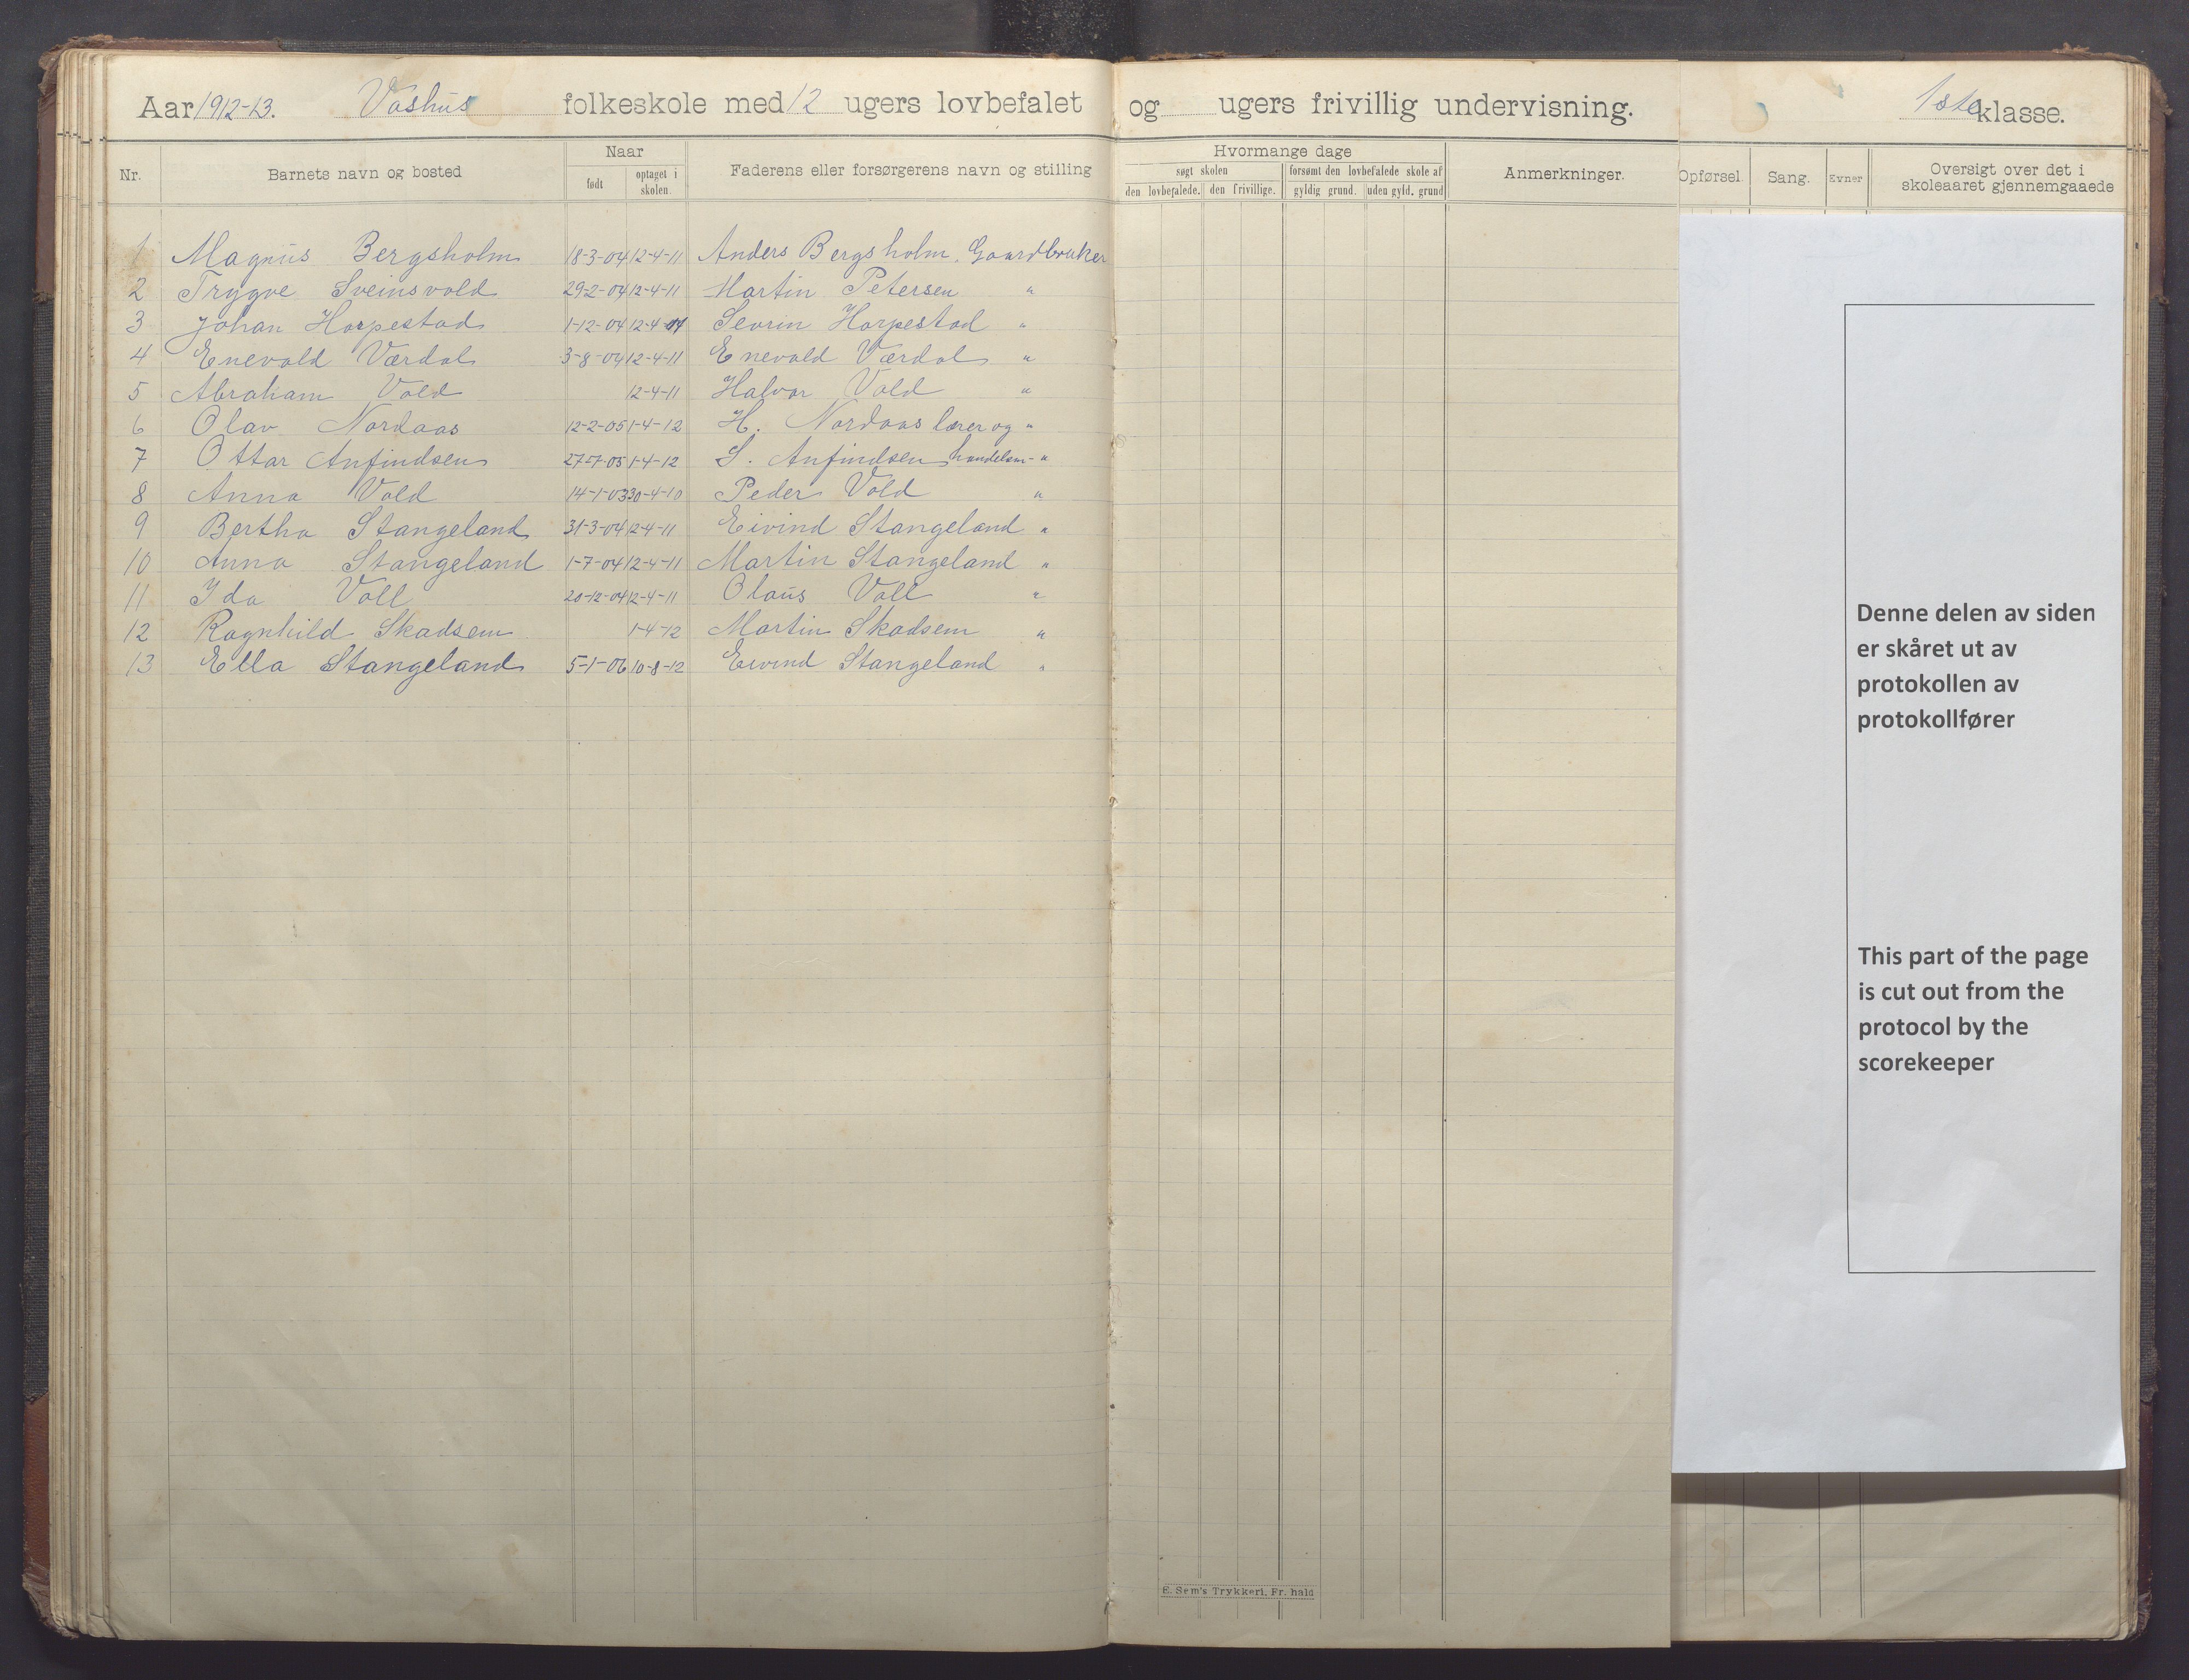 Aar 1912-13. Vashus folkeskole med 12 ugers lovbefalet og ugers frivillig undervisning. 1ste klasse.
Nr. Barnets navn og bosted Naar Faderens eller forsørgerens navn og stilling Hvormange dage Anmerkninger. Opførsel. Sang. Evner Oversigt over det i skoleaaret gjennemgaaede
født optaget i skolen. søgt skolen forsømt den lovbefalede skole af
den lovbefalede. den frivillige. gyldig grund. uden gyld. grund
1 Magnus Bergsholm 18-3-04 12-4-11 Anders Bergsholm. Gaardbruker
2 Trygve Sveinsvold 29-2-04 12-4-11 Martin Petersen "
3 Johan Horpestad 1-12-04 12-4-11 Sevrin Horpestad "
4 Enevald Værdal 3-8-04 12-4-11 Enevald Værdal "
5 Abraham Vold 12-4-11 Halvor Vold "
6 Olav Nordaas 12-2-05 1-4-12 H. Nordaas lærer og "
7 Ottar Anfindsen 27-7-05 1-4-12 S. Anfindsen handelsm- "
8 Anna Vold 14-1-03 30-4-10 Peder Vold "
9 Bertha Stangeland 31-3-04 12-4-11 Eivind Stangeland "
10 Anna Stangeland 1-7-04 12-4-11 Martin Stangeland "
11 Ida Voll 20-12-04 12-4-11 Olaus Voll "
12 Ragnhild Skadsem 1-4-12 Martin Skadsem "
13 Ella Stangeland 5-1-06 10-8-12 Eivind Stangeland "
Denne delen av siden
er skåret ut av
protokollen av
protokollfører
This part of the page
is cut out from the
protocol by the
scorekeeper
E. Sem's Trykkeri, Fr. hald